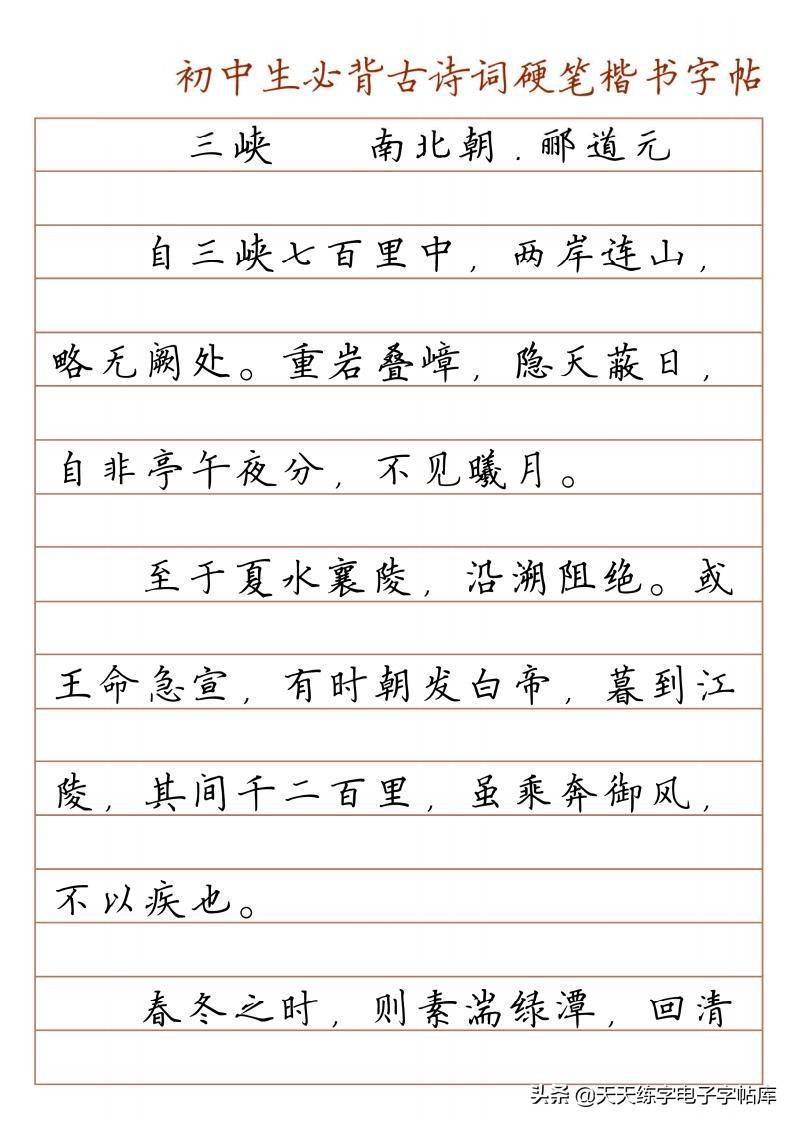 初中生必背古诗词硬笔楷书字帖
三峡 南北朝.郦道元
自三峡七百里中，两岸连山，
略无阙处。重岩叠嶂，隐天蔽日，
自非亭午夜分，不见曦月。
至于夏水襄陵，沿溯阻绝。或
王命急宣，有时朝发白帝，暮到江
陵，其间千二百里，虽乘奔御风，
不以疾也。
春冬之时，则素湍绿潭，回清
头条 @天天练字电子字帖库